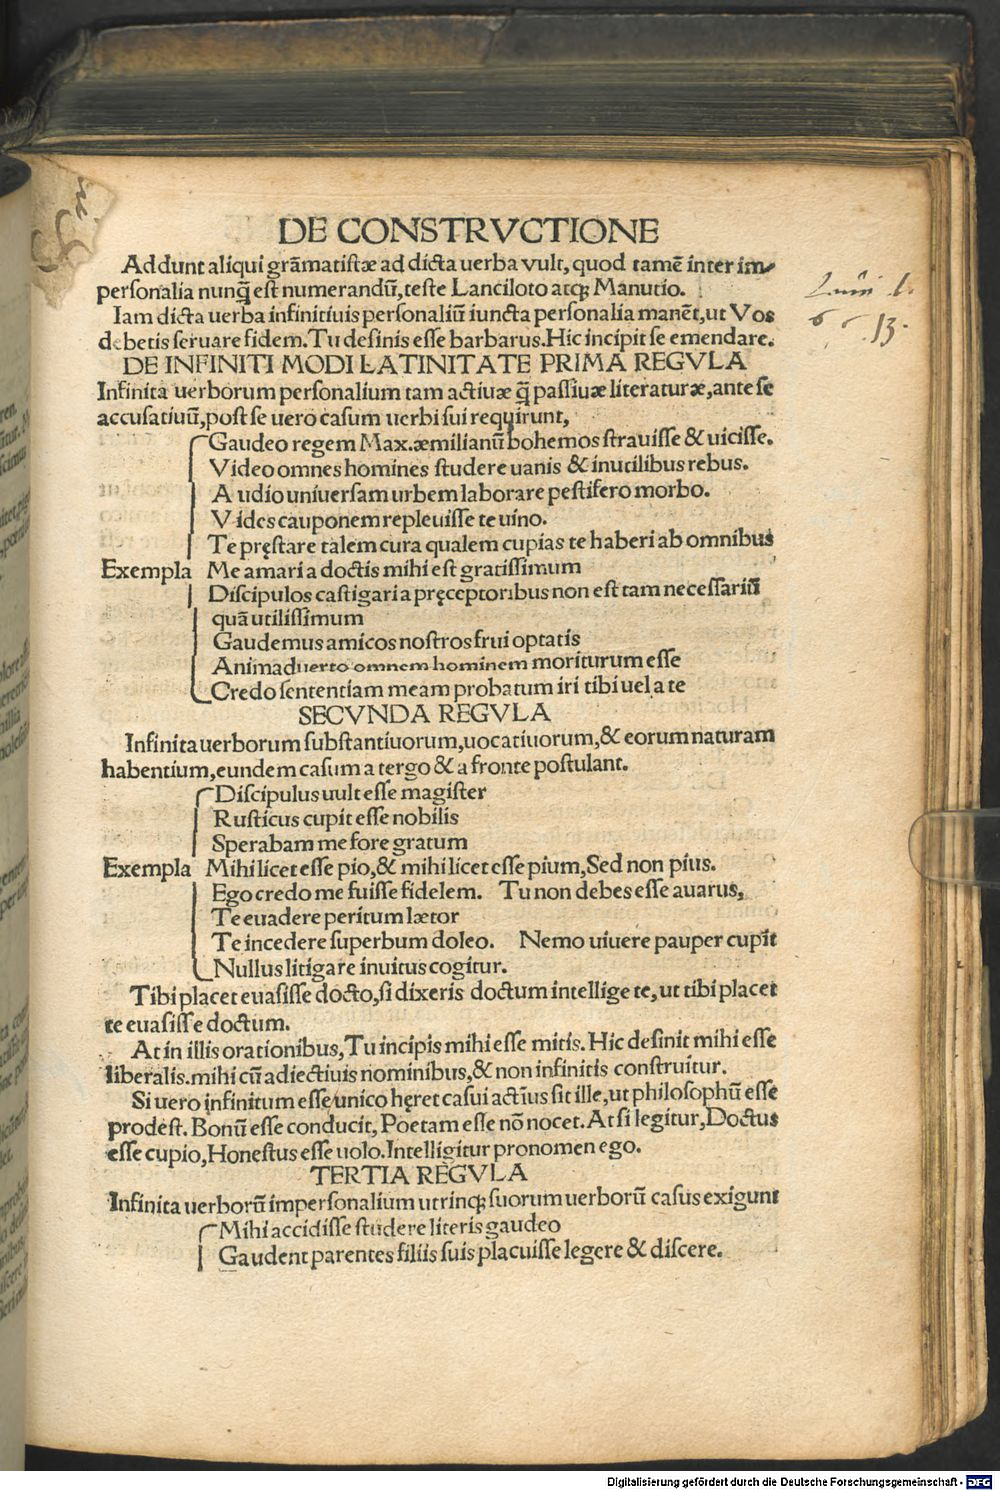 DE CONSTRVCTIONE
Addunt aliqui grãmatistæ ad dicta uerba vult, quod tamẽ inter im-
personalia nunq̃ est numerandũ, teste Lanciloto atq; Manutio.
Iam dicta uerba infinitiuis personaliũ iuncta personalia manẽt, ut Vos
debetis seruare fidem. Tu desinis esse barbarus. Hic incipit se emendare.
DE INFINITI MODI LATINITATE PRIMA REGVLA
Infinita uerborum personalium tam actiuæ q̃ passiuæ literaturæ, ante se
accusatiuũ, post se uero casum uerbi sui requirunt,
Gaudeo regem Max. æmilianũ bohemos strauisse & uicisse.
Video omnes homines studere uanis & inutilibus rebus.
Audio uniuersam urbem laborare pestifero morbo.
Vides cauponem repleuisse te uino.
Te pręstare talem cura qualem cupias te haberi ab omnibus
Exempla Me amari a doctis mihi est gratissimum
Discipulos castigari a pręceptoribus non est tam necessariũ
quã utilissimum
Gaudemus amicos nostros frui optatis
Animaduerto omnem hominem moriturum esse
Credo sententiam meam probatum iri tibi uel a te
SECVNDA REGVLA
Infinita uerborum substantiuorum, uocatiuorum, & eorum naturam
habentium, eundem casum a tergo & a fronte postulant.
Discipulus uult esse magister
Rusticus cupit esse nobilis
Sperabam me fore gratum
Exempla Mihi licet esse pio, & mihi licet esse pium, Sed non pius.
Ego credo me fuisse fidelem. Tu non debes esse auarus,
Te euadere peritum lætor
Te incedere superbum doleo. Nemo uiuere pauper cupit
Nullus litigare inuitus cogitur.
Tibi placet euasisse docto, si dixeris doctum intellige te, ut tibi placet
te euasisse doctum.
At in illis orationibus, Tu incipis mihi esse mitis. Hic desinit mihi esse
liberalis. mihi cũ adiectiuis nominibus, & non infinitis construitur.
Si uero infinitum esse unico hęret casui actius sit ille, ut philosophũ esse
prodest. Bonũ esse conducit, Poetam esse nõ nocet. At si legitur, Doctus
esse cupio, Honestus esse uolo. Intelligitur pronomen ego.
TERTIA REGVLA
Infinita uerborũ impersonalium utrinq; suorum uerborũ casus exigunt
Mihi accidisse studere literis gaudeo
Gaudent parentes filiis suis placuisse legere & discere.
Digitalisierung gefördert durch die Deutsche Forschungsgemeinschaft - DFG